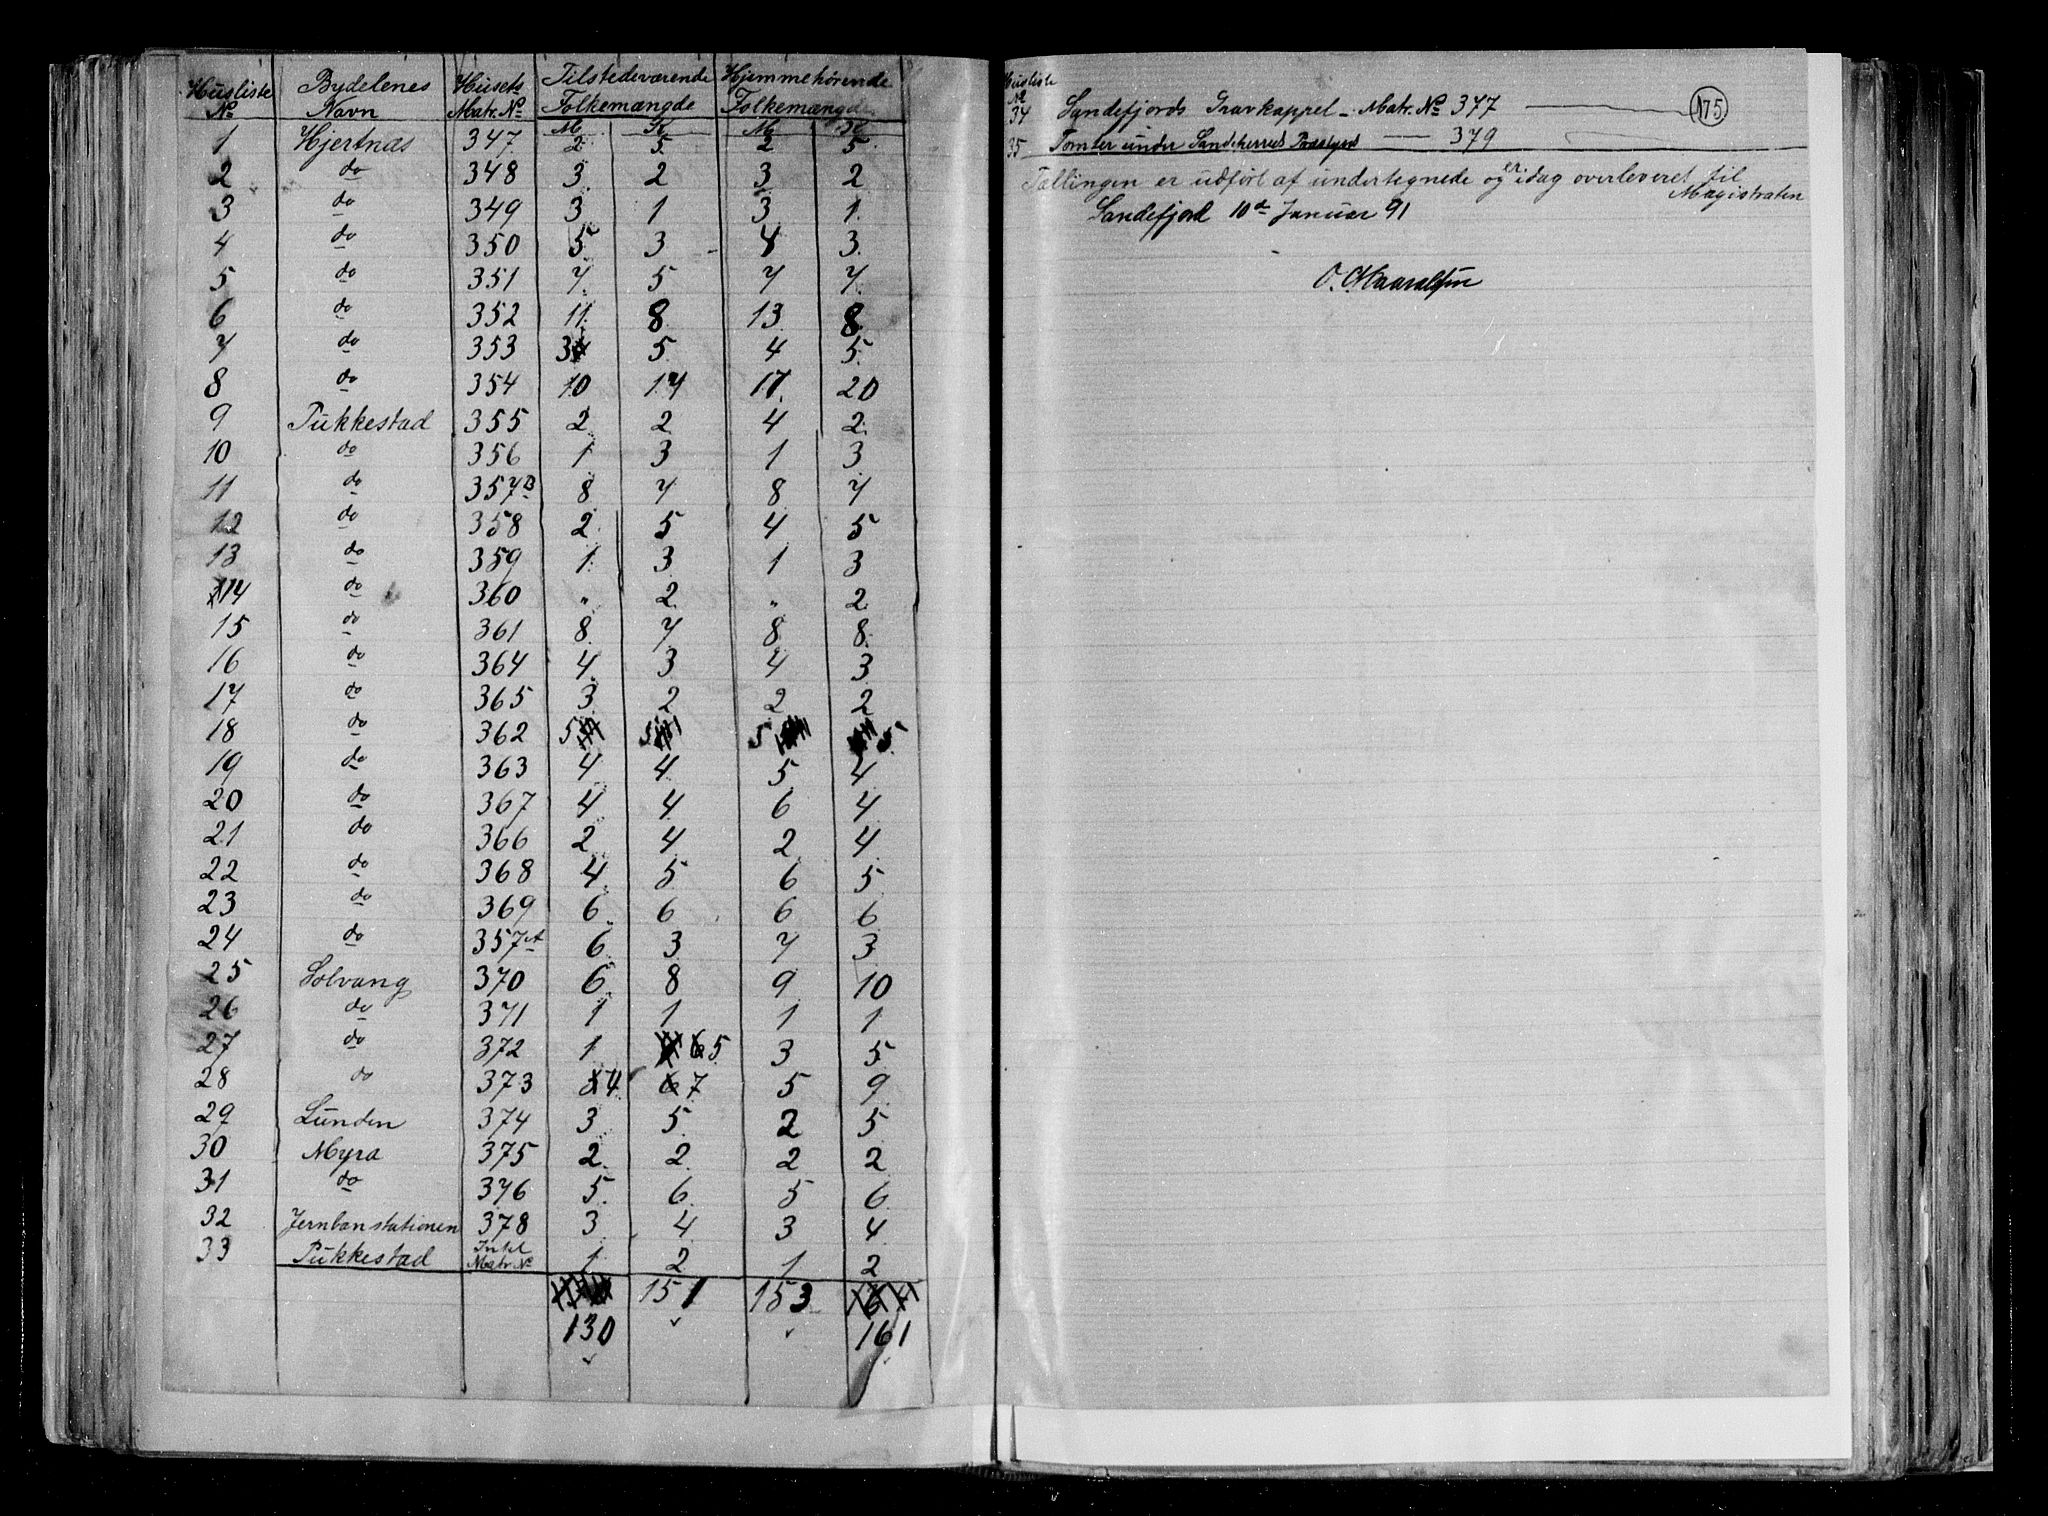 Husliste Bydelenes Husets Tilstedeværende Hjemmehørende
No Navn Matr. No Folkemængde Folkemængde
M. K. M. K.
1 Hjertnæs 347 2 5 2 5
2 do 348 3 2 3 2
3 do 349 3 1 3 1
4 do 350 5 3 4 3
5 do 351 7 5 7 7
6 do 352 11 8 13 8
7 do 353 3 5 4 5
8 do 354 10 17 17 20
9 Pukkestad 355 2 2 4 2
10 do 356 1 3 1 3
11 do 357B 8 7 8 7
12 do 358 2 5 4 5
13 do 359 1 3 1 3
14 do 360 " 2 " 2
15 do 361 8 7 8 8
16 do 364 4 3 4 3
17 do 365 3 2 2 2
18 do 362 5 5 5 5
19 do 363 4 4 5 4
20 do 367 4 4 6 4
21 do 366 2 4 2 4
22 do 368 4 5 6 5
23 do 369 6 6 6 6
24 do 357A 6 3 7 3
25 Solvang 370 6 8 9 10
26 do 371 1 1 1 1
27 do 372 1 5 3 5
28 do 373 4 7 5 9
29 Lunden 374 3 5 2 5
30 Myra 375 2 2 2 2
31 do 376 5 6 5 6
32 Jernbanstationen 378 3 4 3 4
33 Pukkestad Intet Matr. No 1 2 1 2
151 153
130 161
Husliste
No
34 Sandefjords Gravkappel - Matr. No 377
175
35 Tomter under Sandeherred Præstgrd 379
Tællingen er udført af undertegnede og er idag overleveret til
Magistraten
Sandefjord 10de Januar 91